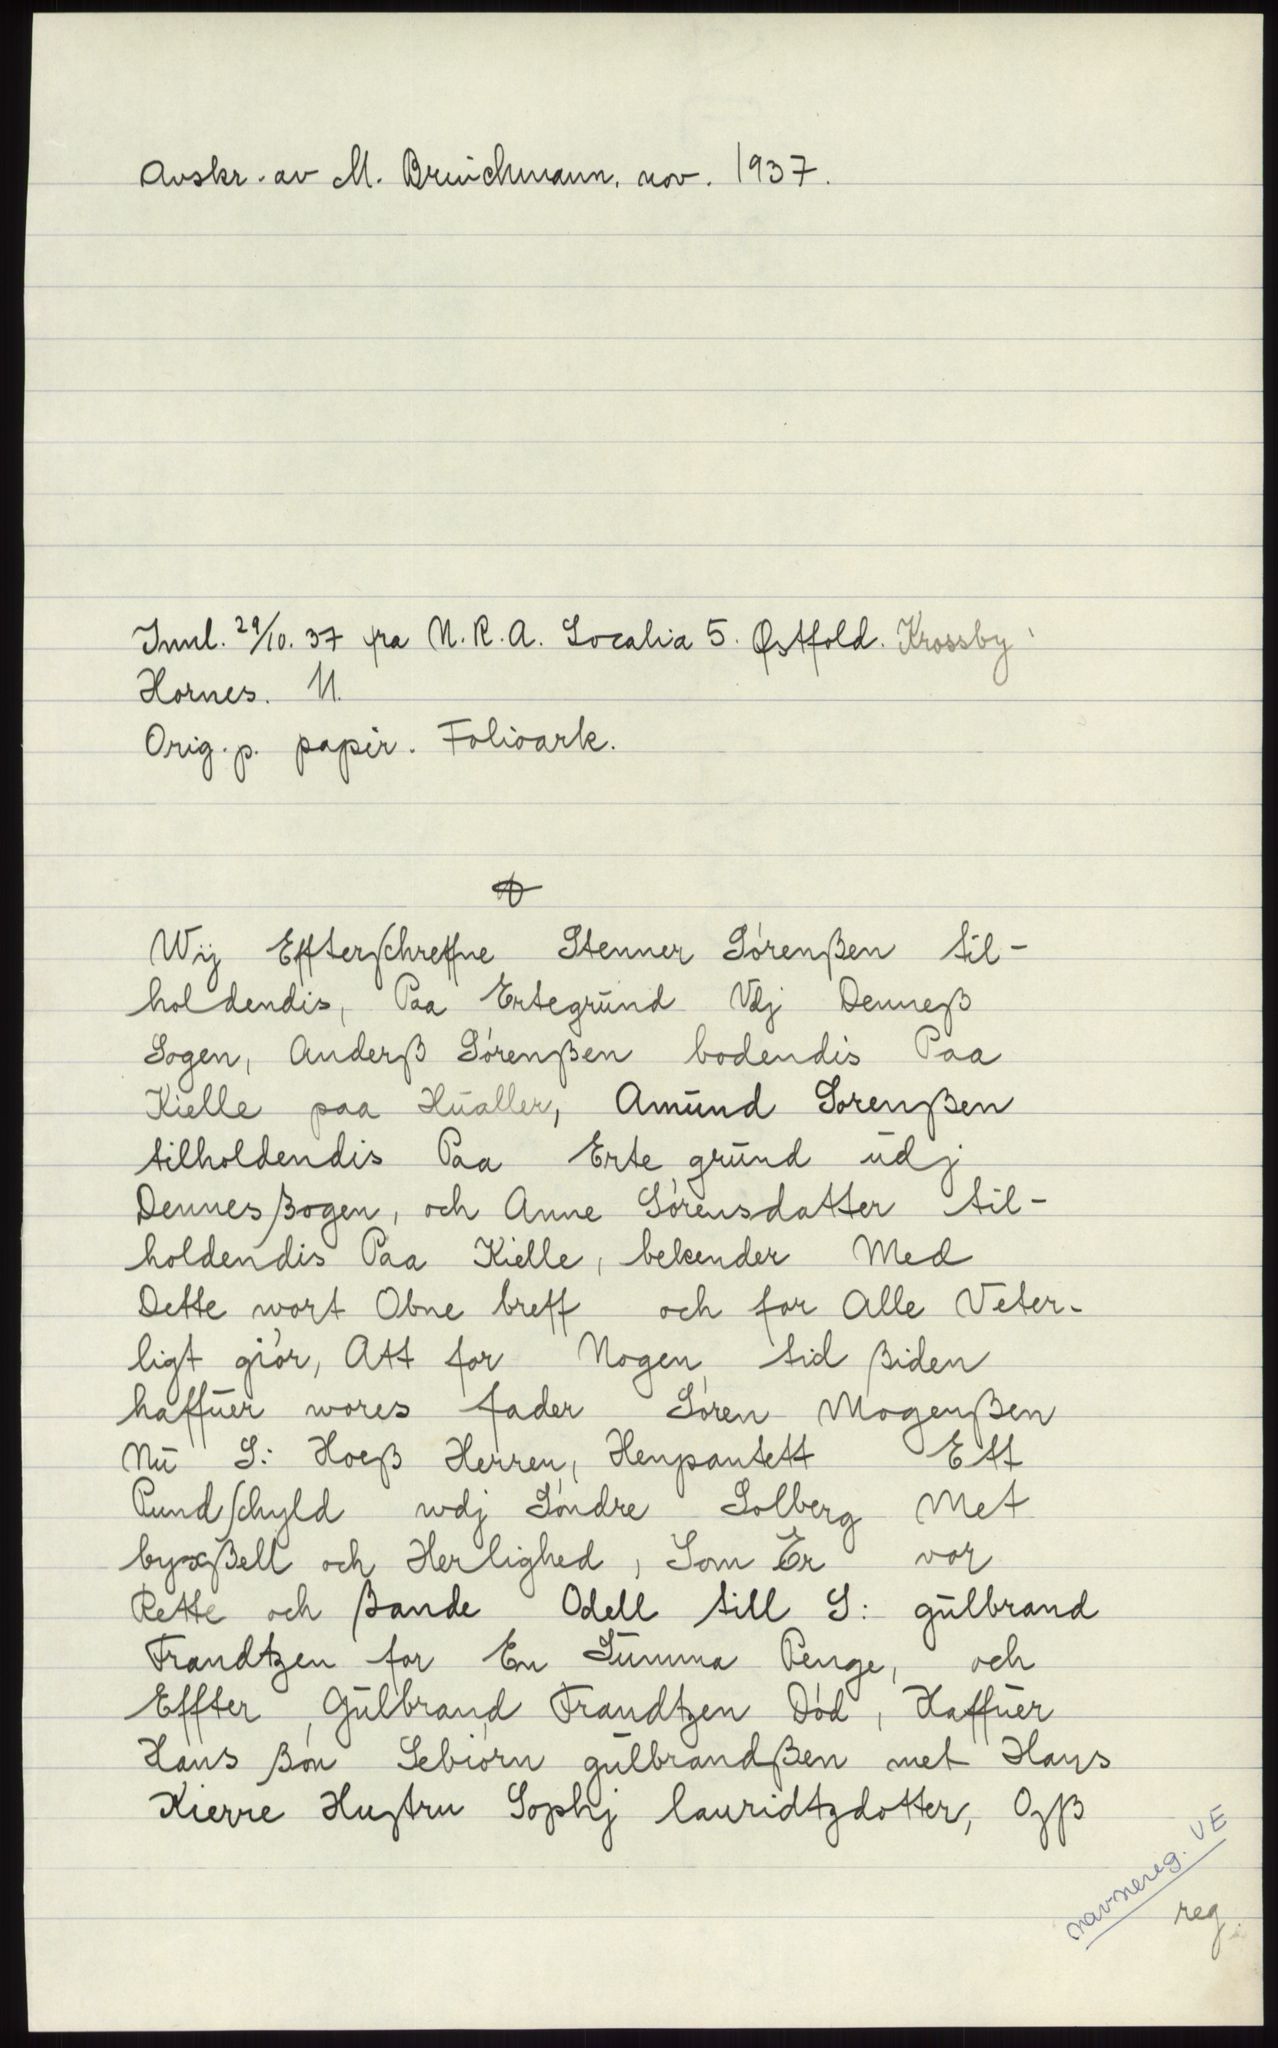 Avskr. av M. Brinchmann, nov. 1937.
Innl. 29/10. 37 fra N. R. A. Localia 5. Østfold. Krossby
Hornes. N.
Orig. p. papir. Folioark.
Wij Effterschreffne Stenner Sörenßen til-
holdendis, Paa Ertegrund Vdj Denneß
Sogen, Anderß Sörenßen bodendis Paa
Kielle paa Hualler, Amund Sorenßen
tilholdendis Paa Erte grund udj
Dennes ßogen, och Anne Sörensdatter til-
holdendis Paa Kielle, bekender Med
Dette wort Obne breff och for Alle Veter-
ligt giör, Att for Nogen tid ßiden
haffuer wores fader Sören Mogenßen
Nu S: Hoeß Herren, Henpantett Ett
Pund schyld wdj Söndre Solberg Met
byxßell och Herlighed, Som Er vor
Rette och ßande Odell till S: gulbrand
Frandtzen for En Summa Penge, och
Effter Gulbrand Frandtzen Död, Haffuer
Hans ßön Sebiörn gulbrandßen met Hans
Kierre Hustru Sophj lauridtzdotter, Oß
navnereg. VE
reg.